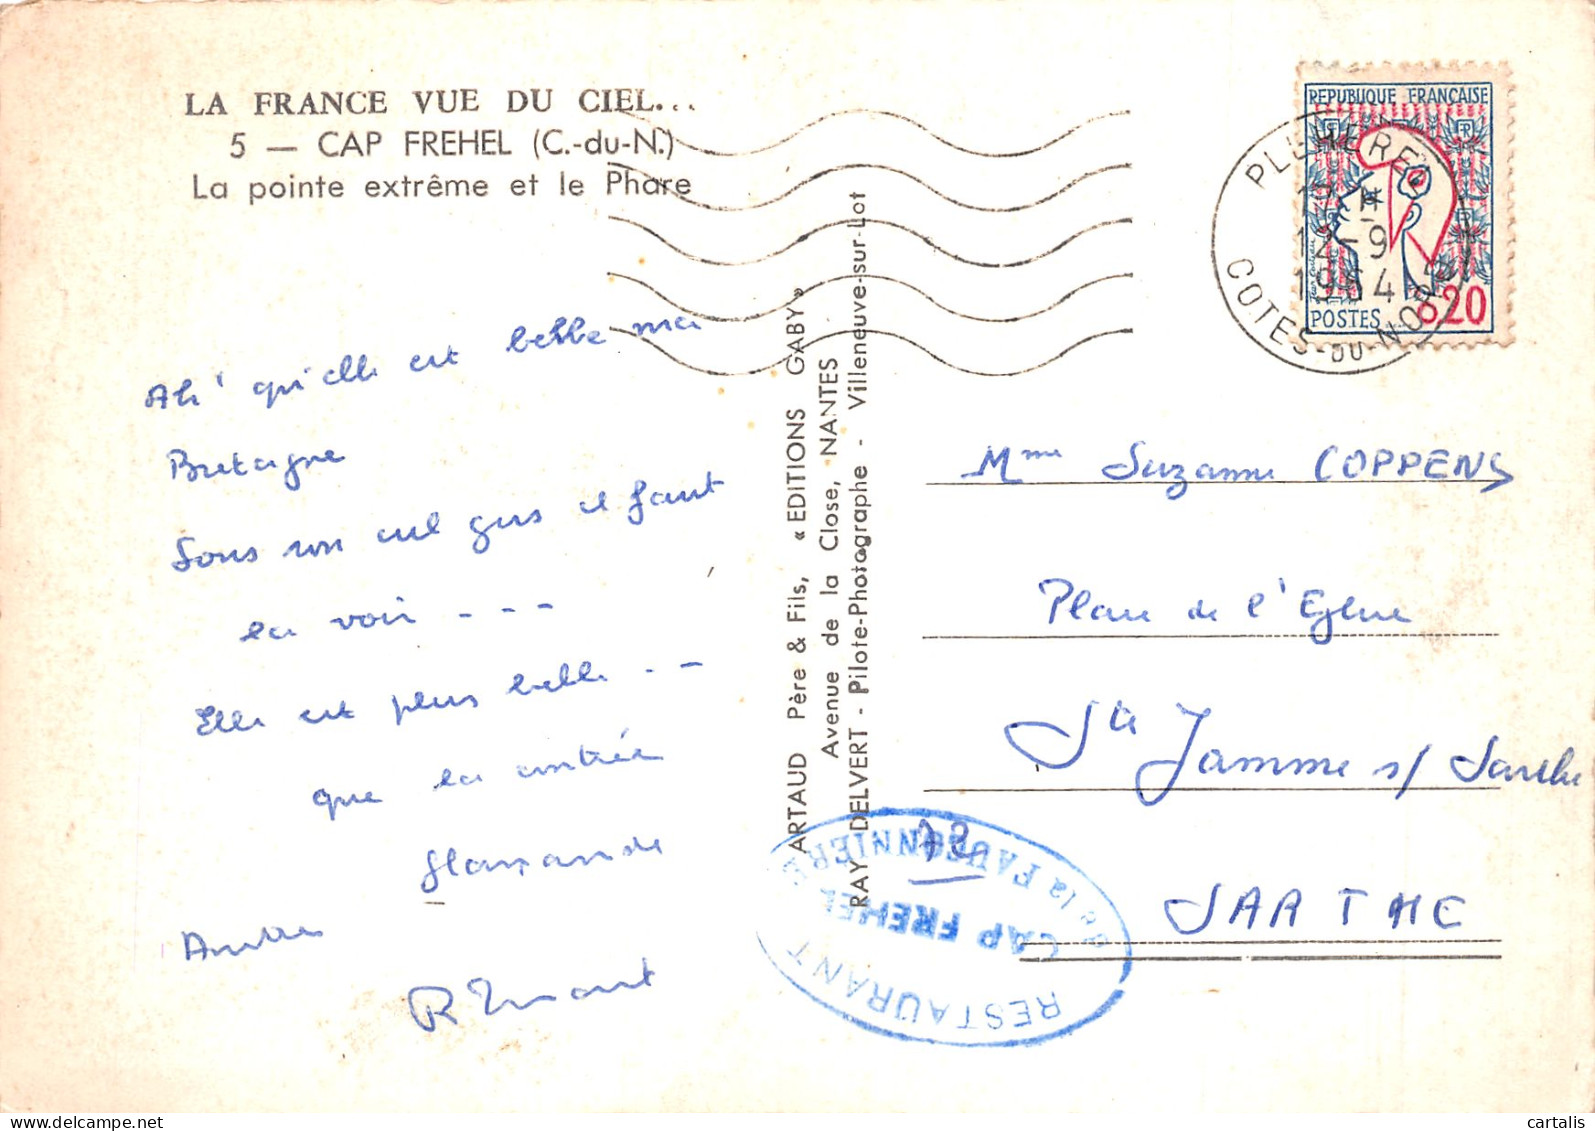 LA FRANCE VUE DU CIEL...
5 — CAP FREHEL (C.-du-N.)
La pointe extrême et le Phare
Ah! qu'elle est belle ma
Bretagne
Sous son ciel gris il faut
la voir - - -
Elle est plus belle - -
que la
Amitiés
ARTAUD Père & Fils, « EDITIONS GABY »
Avenue de la Close, NANTES
RAY DELVERT - Pilote-Photographe - Villeneuve-sur-Lot
REPUBLIQUE FRANÇAISE
POSTES
0,20
PLEHEREL
12-9
1964
COTES-DU-NORD
Mme Suzanne COPPENS
Place de l'Eglise
Ste Jamme s/ Sarthe
72
SARTHE
RESTAURANT de la FAUCONNIERE
CAP FREHEL
cartalis